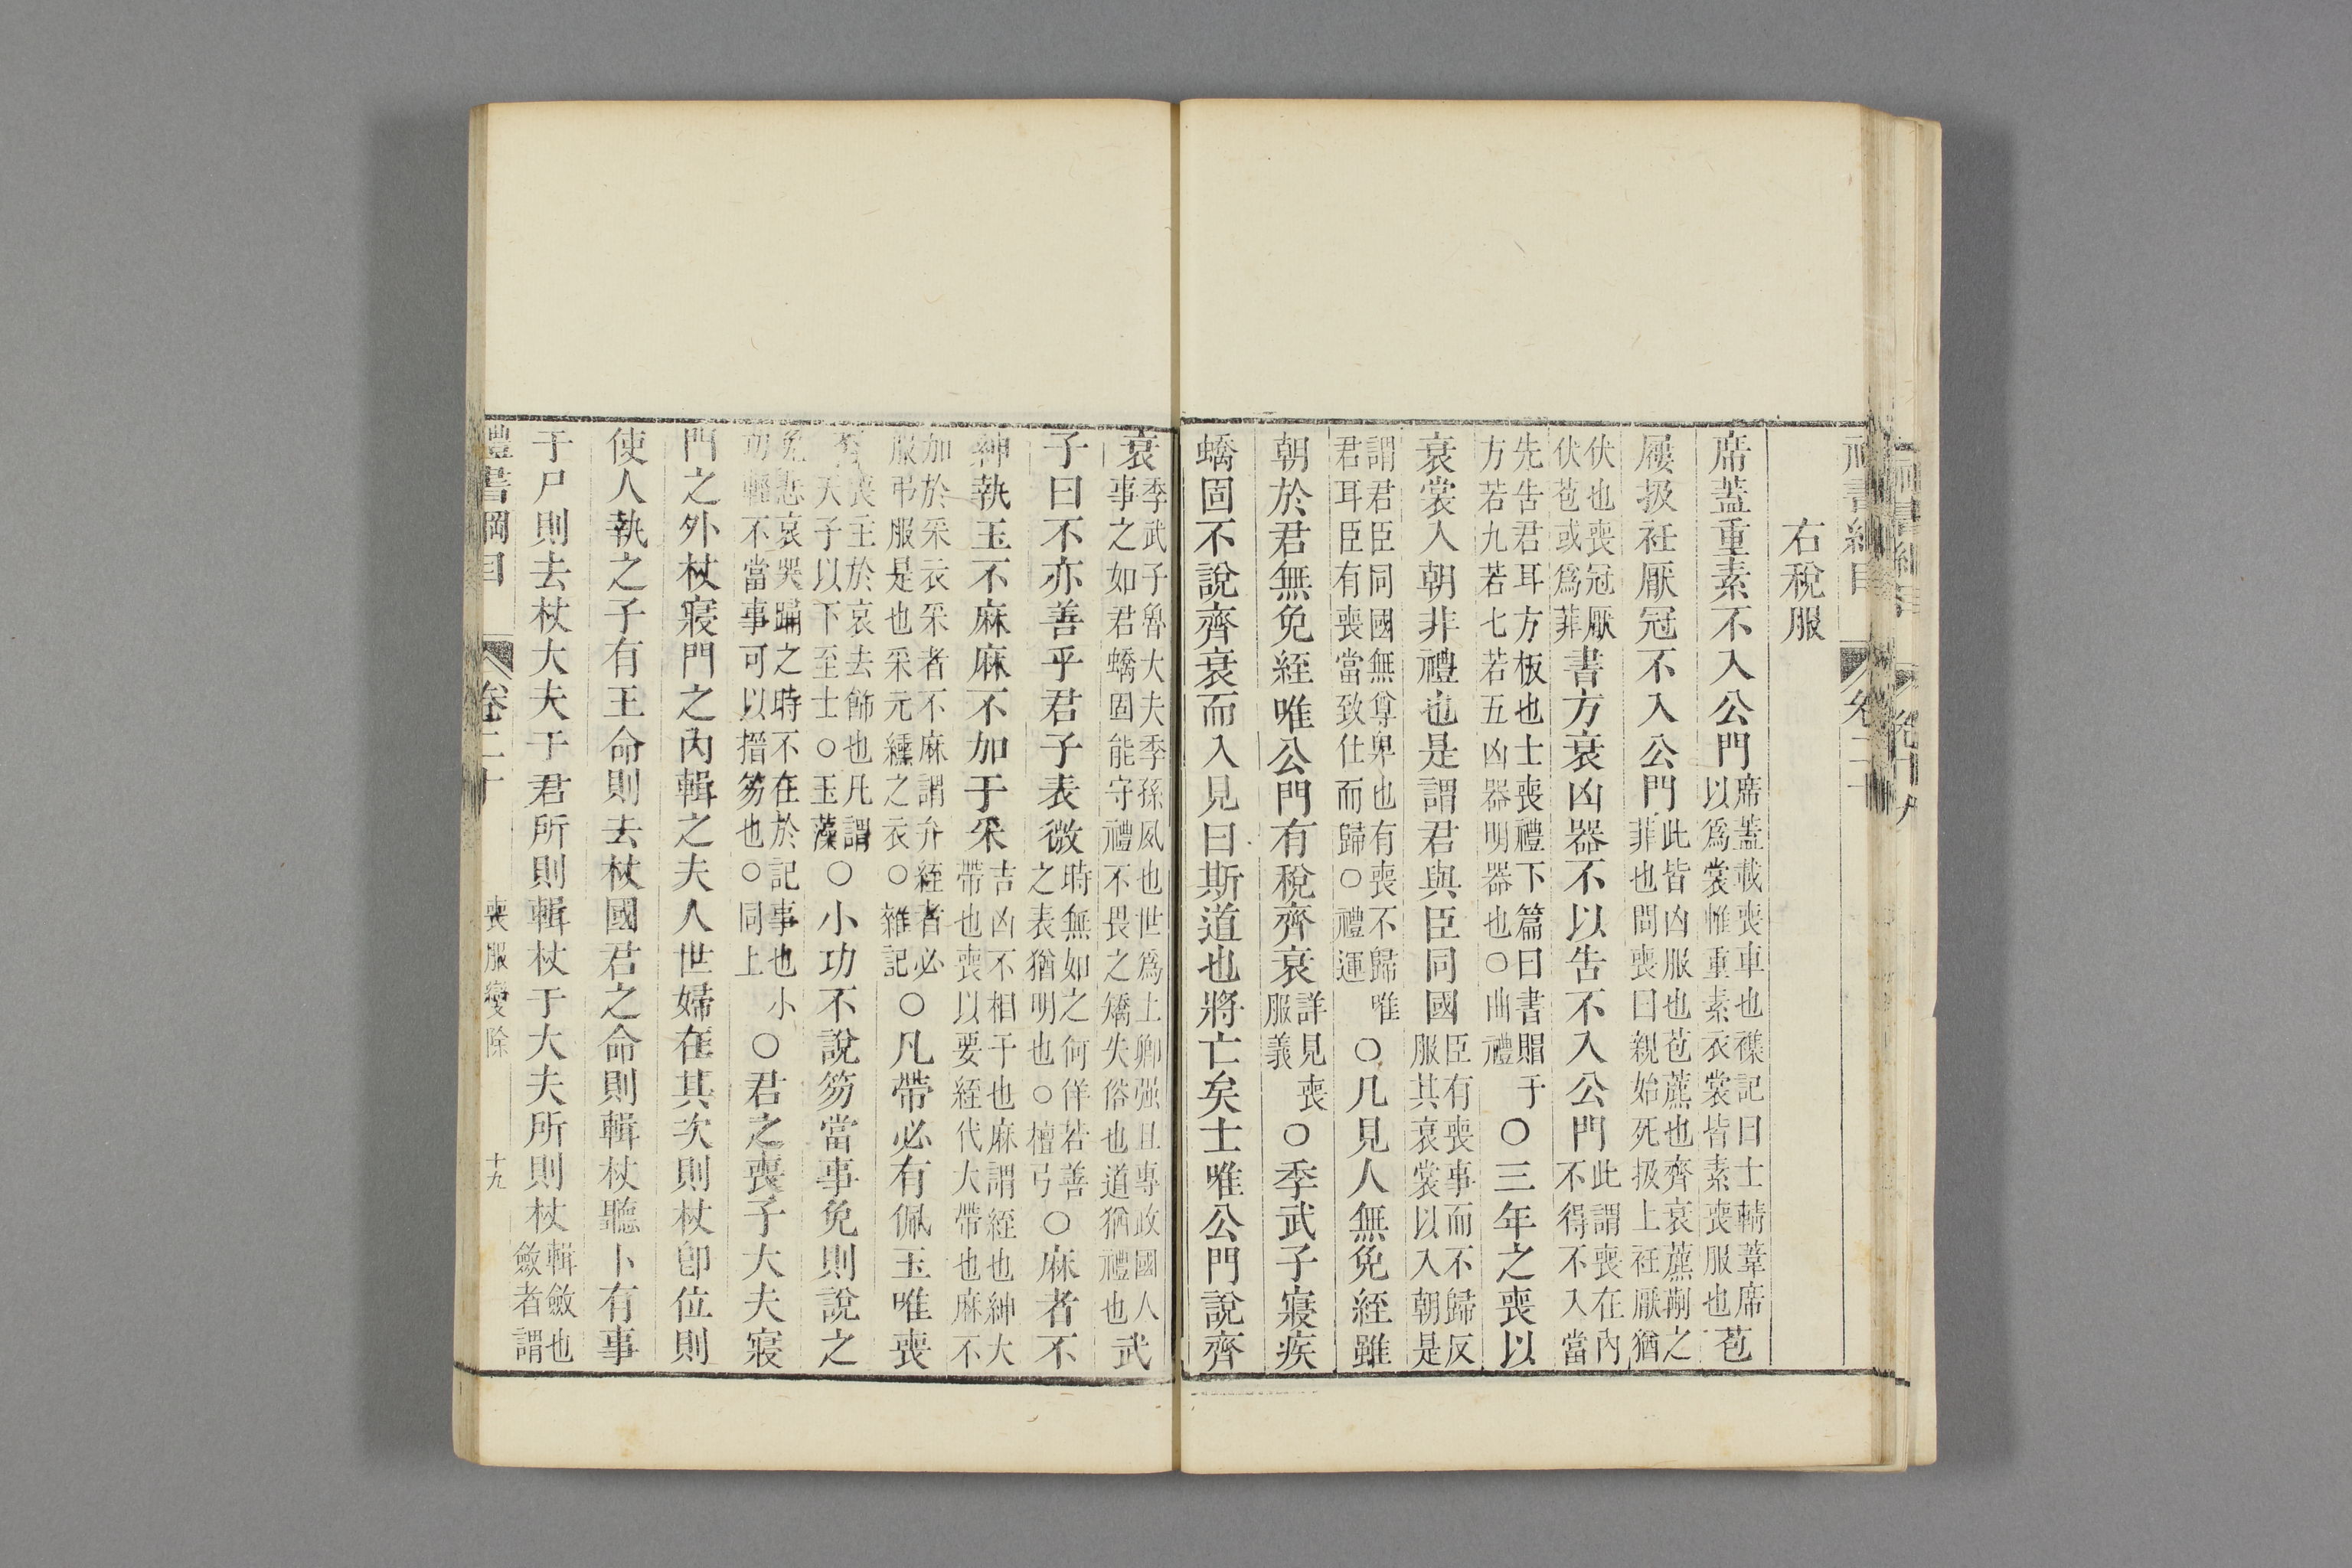 右稅服
席蓋重素不入公門席蓋載喪車也襍記曰士輤葦席以爲裳帷重素衣裳皆素喪服也苞
屨扱衽厭冠不入公門此皆凶服也苞藨也齊衰藨蒯之菲也問喪曰親始死扱上衽厭猶
伏也喪冠厭伏苞或爲菲書方衰凶器不以告不入公門此謂喪在內不得不入當
先告君耳方板也士喪禮下篇曰書賵于方若九若七若五凶器明器也○曲禮○三年之喪以
衰裳入朝非禮也是謂君與臣同國臣有喪事而不歸反服其衰裳以入朝是
謂君臣同國無尊卑也有喪不歸唯君耳臣有喪當致仕而歸○禮運○凡見人無免絰雖
朝於君無免絰唯公門有稅齊衰詳見喪服義○季武子寢疾
蟜固不說齊衰而入見曰斯道也將亡矣士唯公門說齊
衰季武子魯大夫季孫夙也世爲上卿强且專政國人事之如君蟜固能守禮不畏之矯失俗也道猶禮也武
子曰不亦善乎君子表微時無如之何佯若善之表猶明也○檀弓○麻者不
紳執玉不麻麻不加于采吉凶不相干也麻謂絰也紳大帶也喪以要絰代大帶也麻不
加於采衣采者不麻謂弁絰者必服弔服是也采元纁之衣○雜記○凡帶必有佩玉唯喪
喪主於哀去飾也凡謂天子以下至士○玉藻○小功不說笏當事免則說之
免悲哀哭踊之時不在於記事也小功輕不當事可以搢笏也○同上○君之喪子大夫寢
門之外杖寢門之內輯之夫人世婦在其次則杖卽位則
使人執之子有王命則去杖國君之命則輯杖聽卜有事
于尸則去杖大夫于君所則輯杖于大夫所則杖輯斂也斂者謂
禮書綱目　卷二十　喪服變除　十九